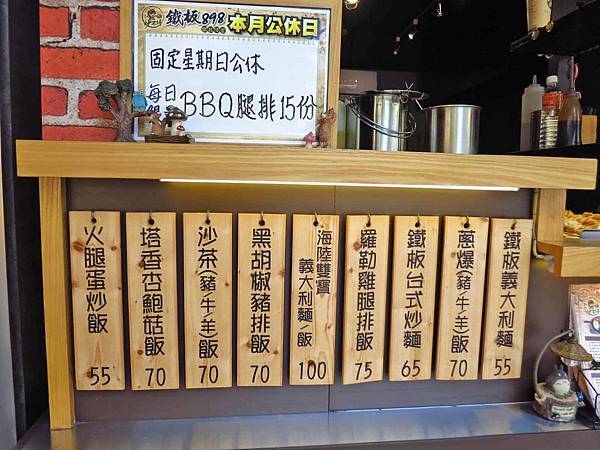 鐵板898 本月公休日
固定星期日公休
每日
BBQ腿排15份
火腿蛋炒飯 55
塔香杏鮑菇飯 70
沙茶(豬/牛/羊)飯 70
黑胡椒豬排飯 70
海陸雙寶
義大利麵/飯 100
羅勒雞腿排飯 75
鐵板台式炒麵 65
蔥爆(豬/牛/羊)飯 70
鐵板義大利麵 55